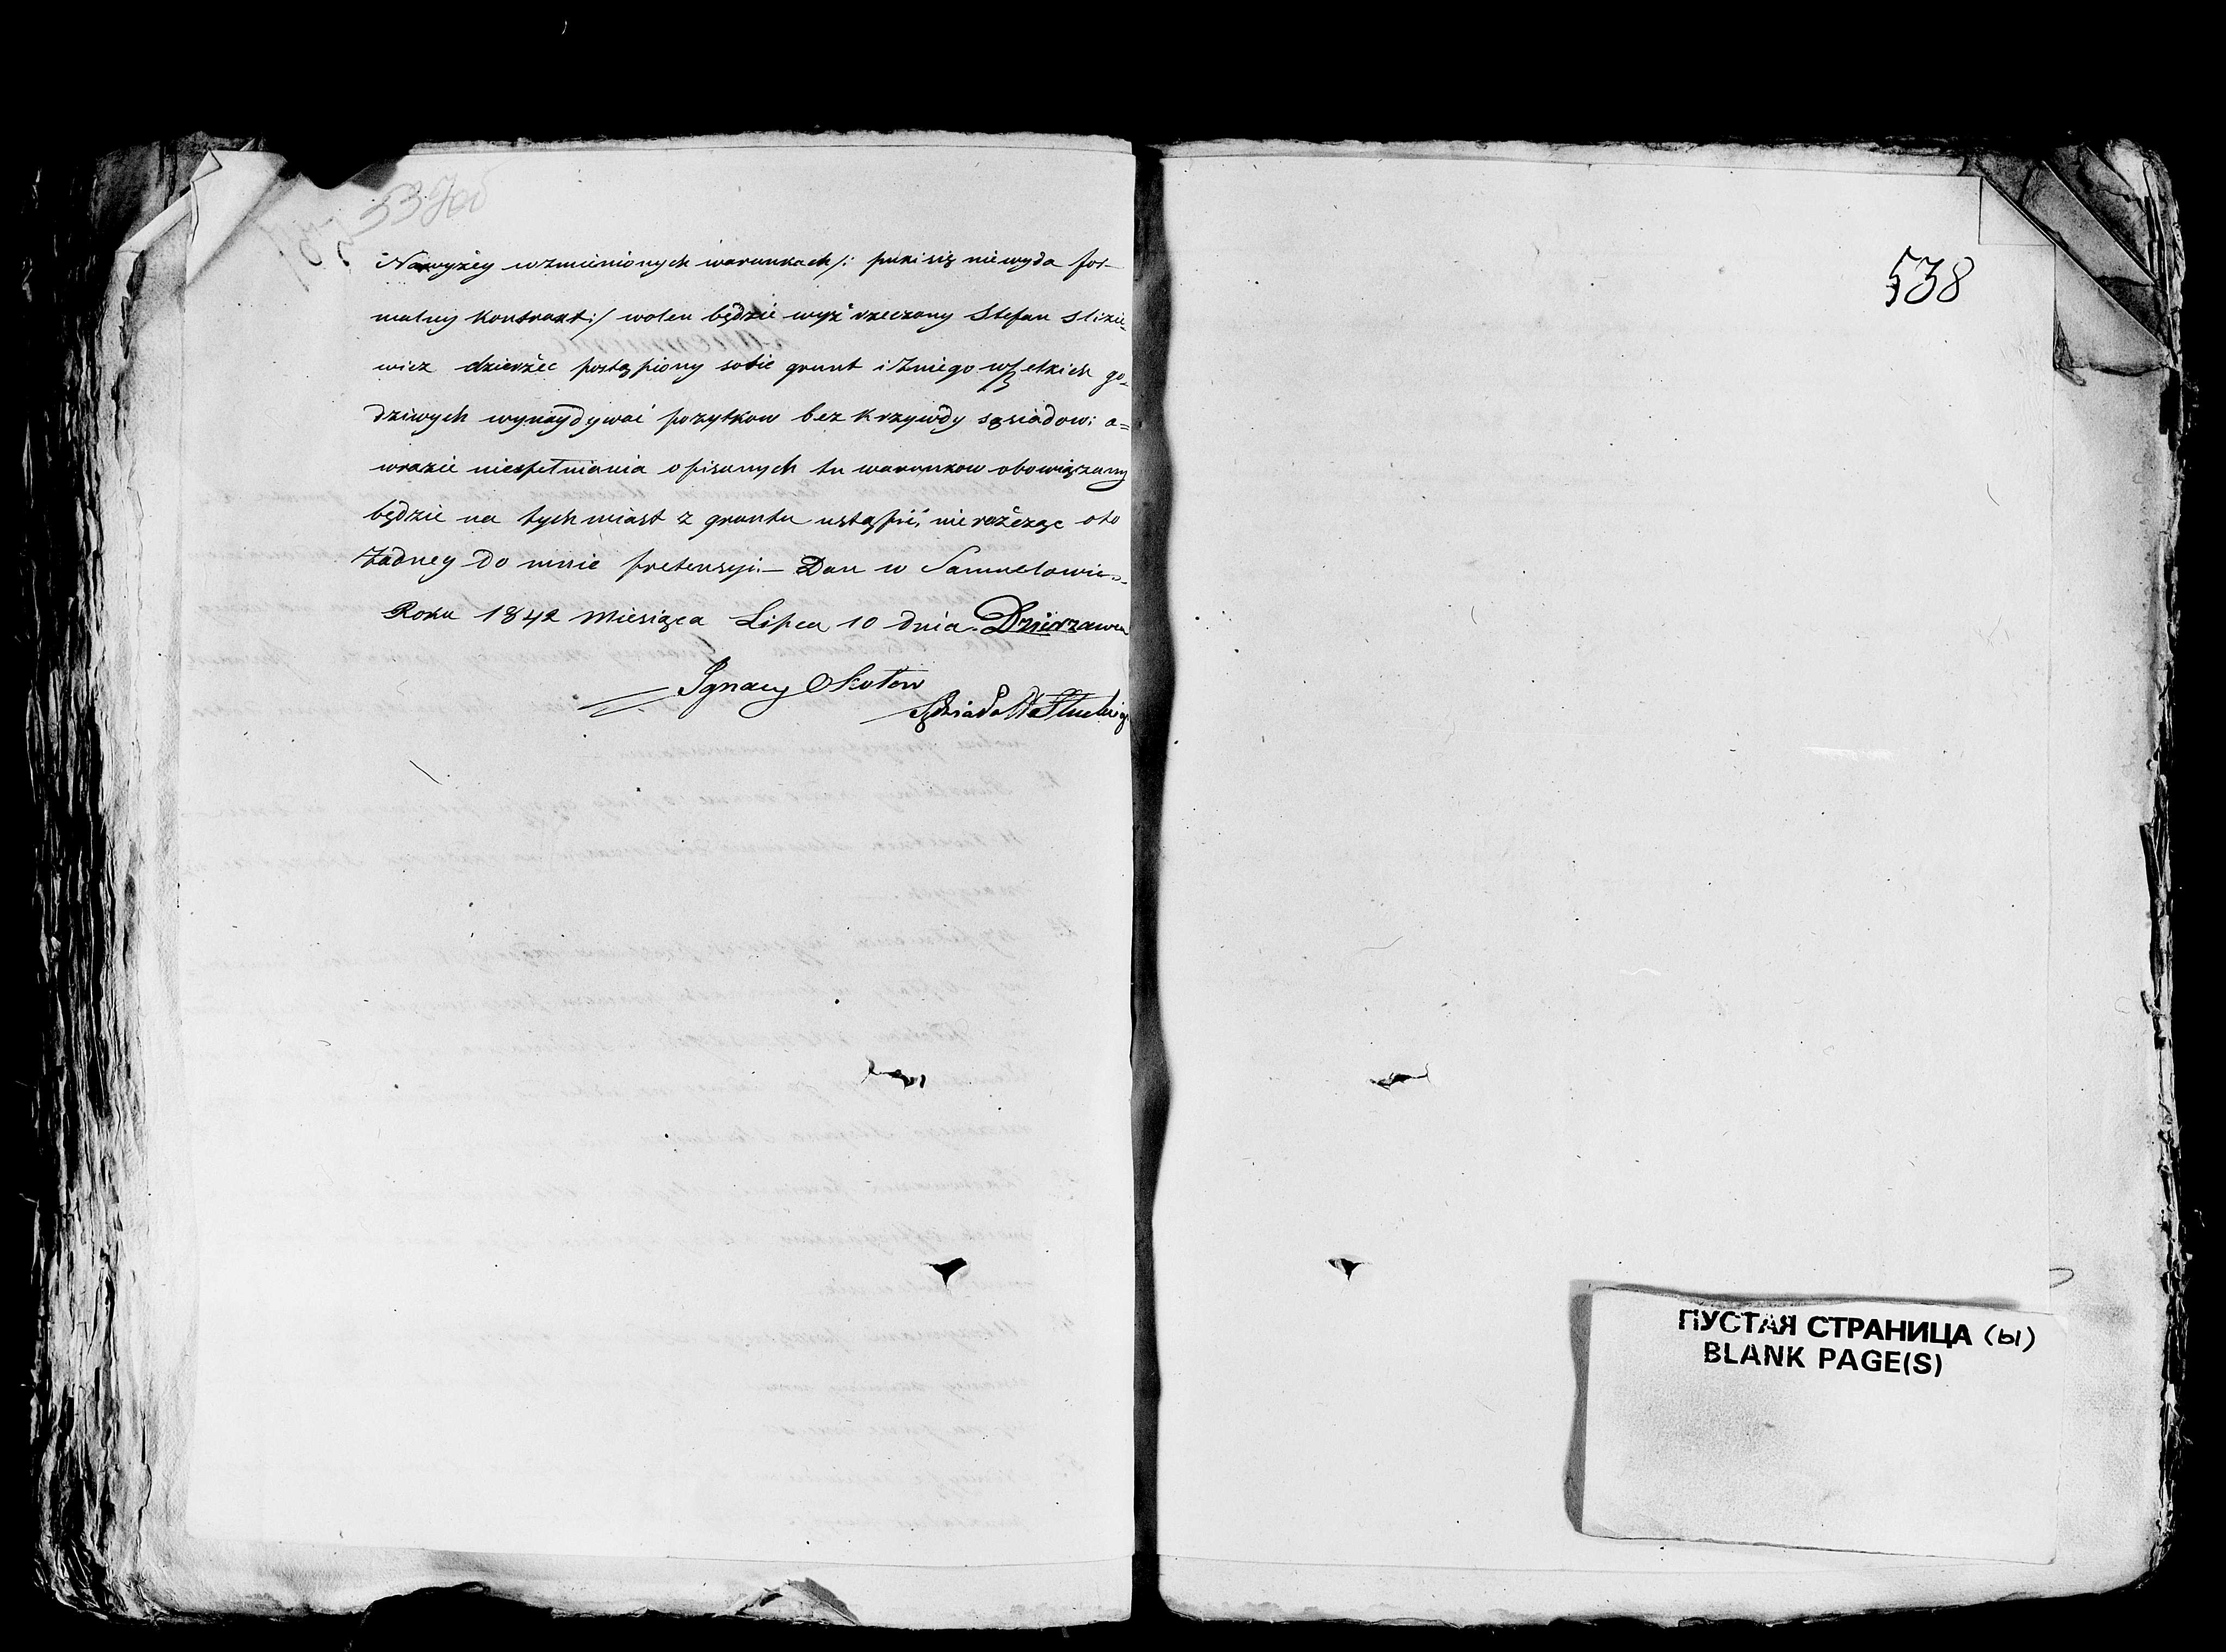 537об
Nawyżey wzmienionych warunkach /: puki się niewyda for-
malny kontrakt :/ wolen będzie wyż rzeczony Stefan Slizie-
wicz dzierżec postąpiony sobie grunt i zniego wszelkich go-
dziwych wynaydywać pożytkow bez krzywdy sąsiadow; a=
wrazie niespełniania opisanych tu warunkow obowiązany
będzie na tych miast z gruntu ustąpić, nie roszcząc oto
Żadney do mnie pretensyi. — Dan w Samuelowie
Roku 1842 Miesiąca Lipca 10 dnia. Dzierzawca
Ignacy
538
ПУСТАЯ СТРАНИЦА (Ы)
BLANK PAGE(S)